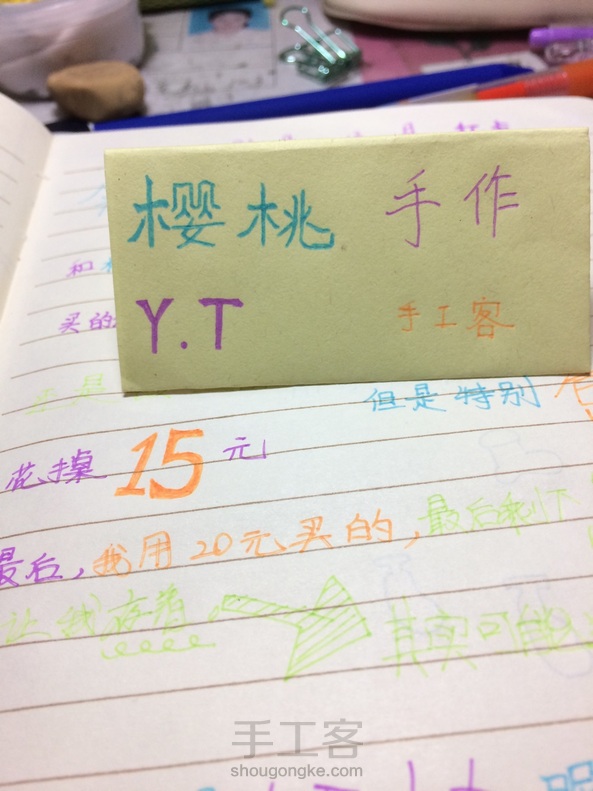 樱桃 手作
Y.T 手工客
和
买的
但是特别
花掉15元
最后,我用20元买的,最后剩下
让我夜宵
其实可能
手工客
shougongke.com